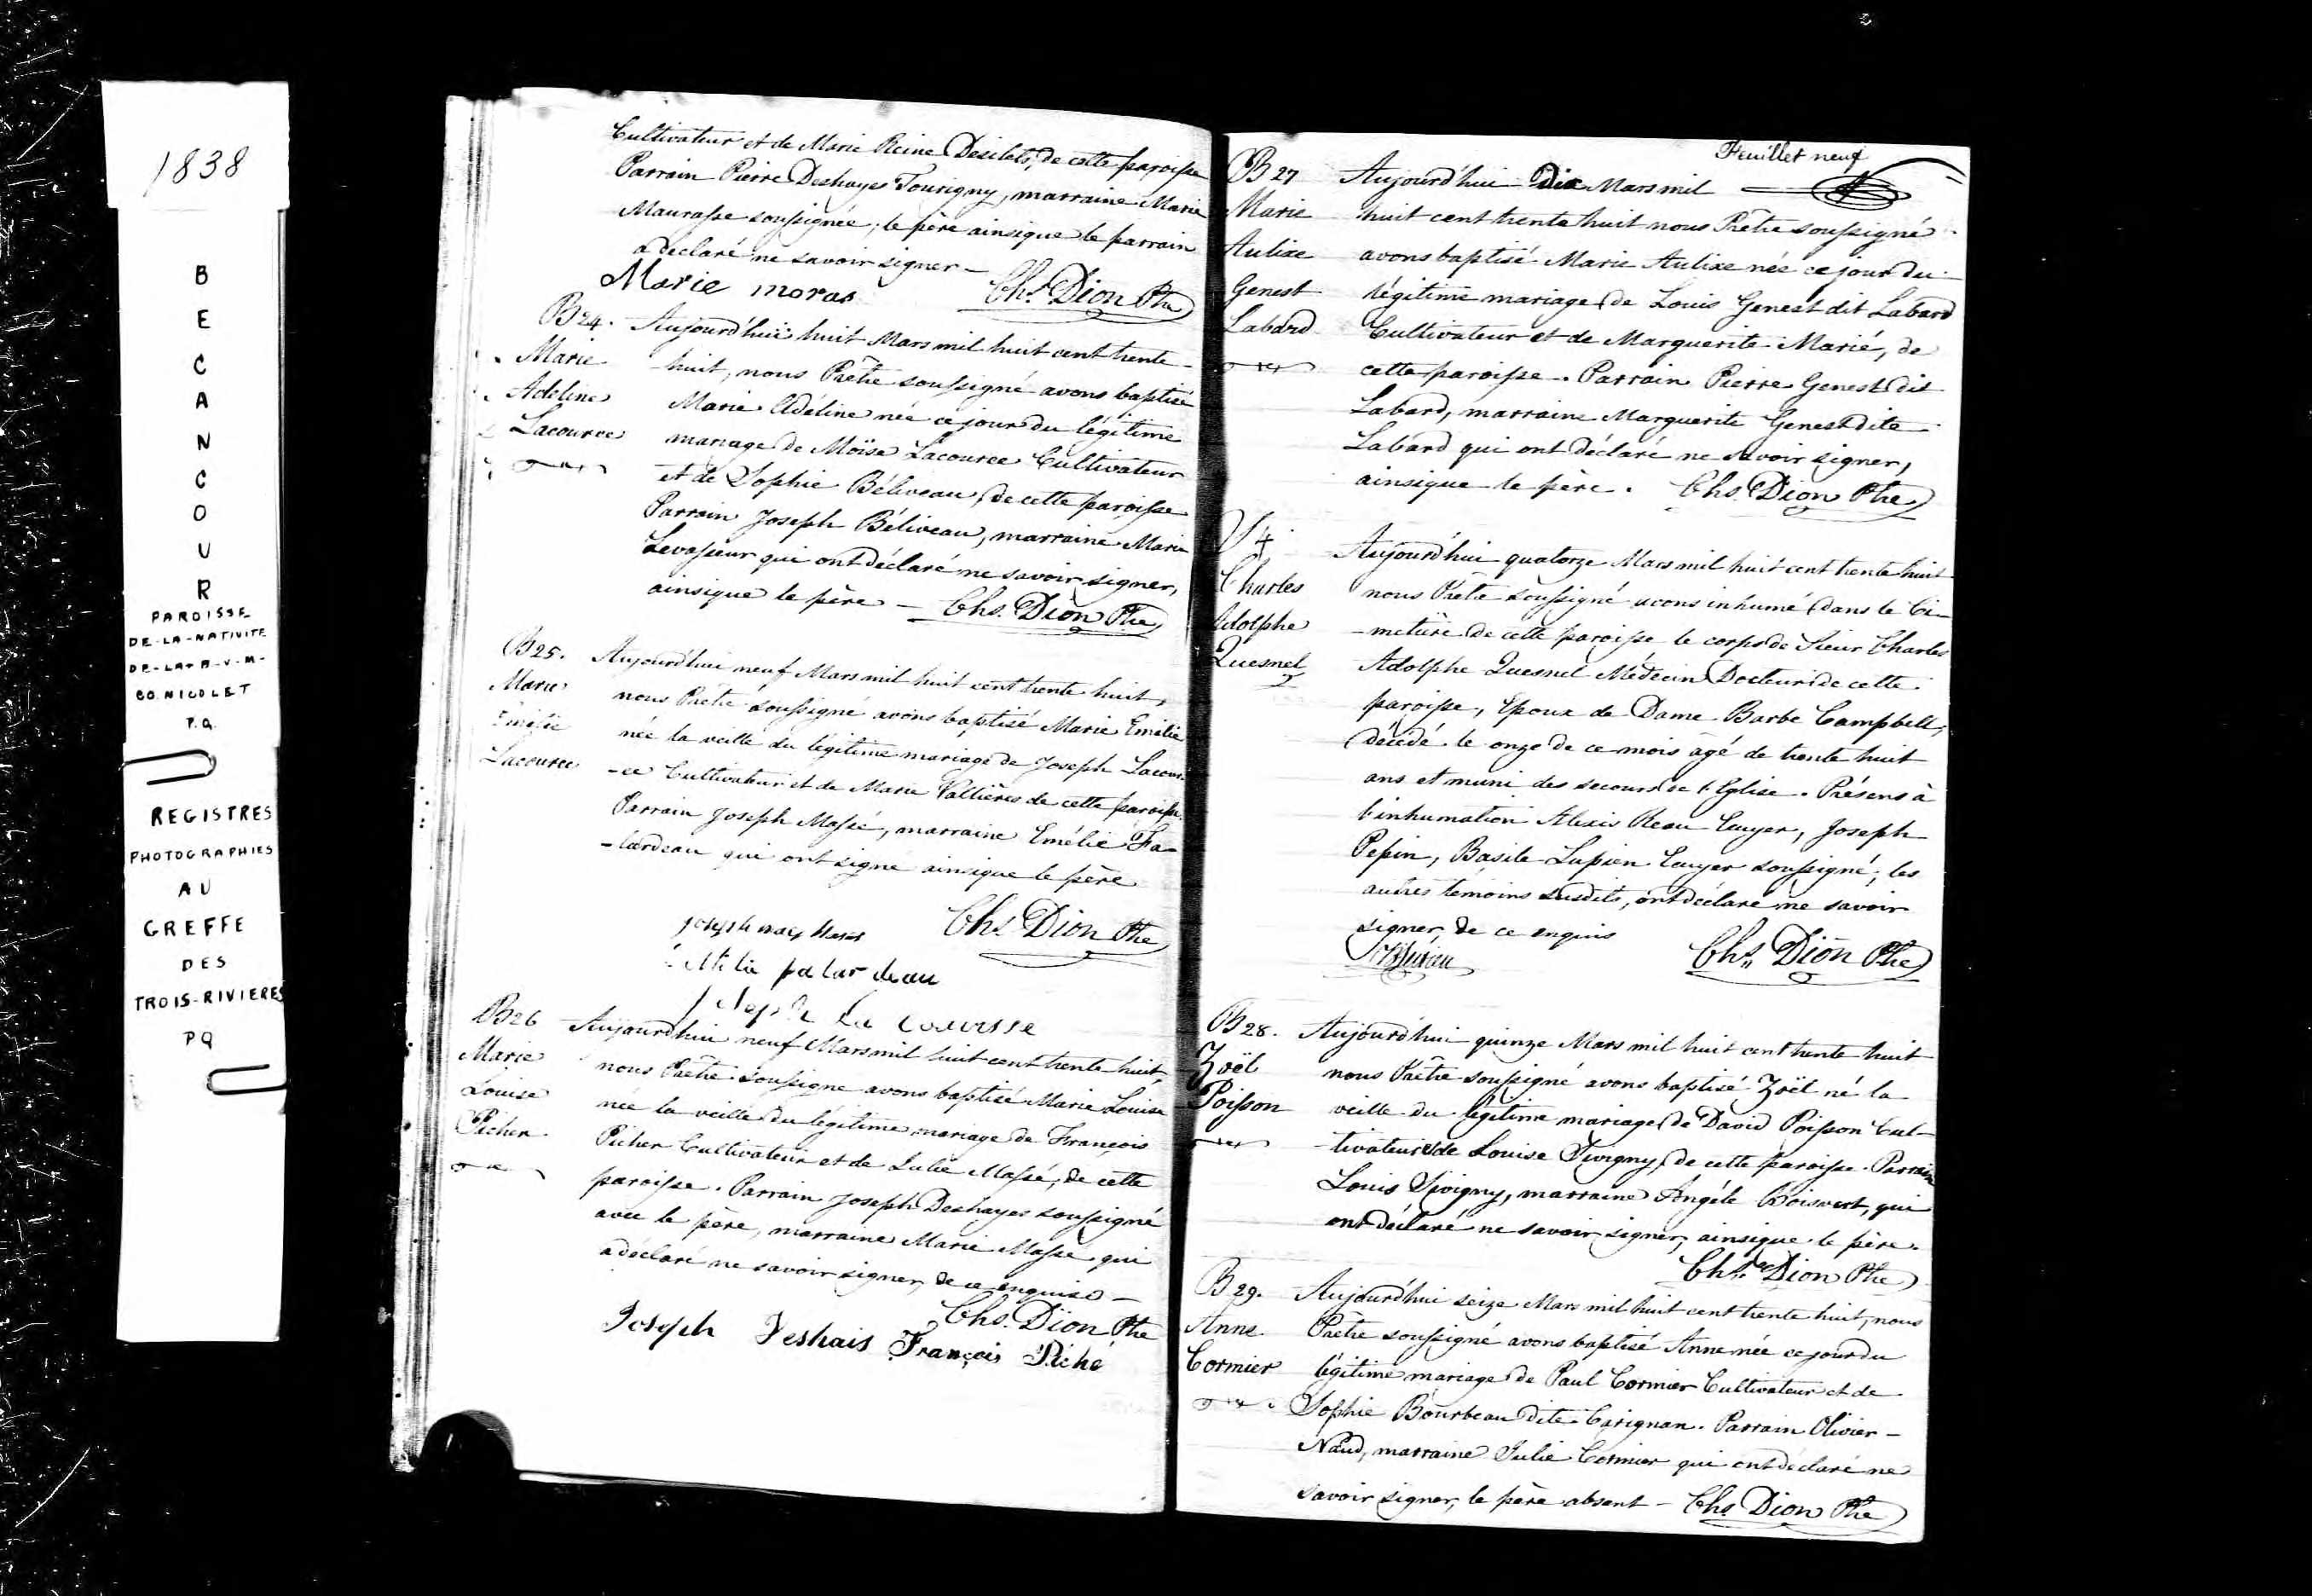 1838
B
E
C
A
N
C
O
U
R
PAROISSE
DE-LA-NATIVITE
DE-LA-B-V-M-
CO. NICOLET
P.Q.
REGISTRES
PHOTOGRAPHIES
AU
GREFFE
DES
TROIS-RIVIERES
PQ
Cultivateur et de Marie Reine Desilets, de cette paroisse
Parrain Pierre Deshayes Tourigny, marraine Marie
Maurasse soussignée, le père ainsique le parrain
a déclaré ne savoir signer –
Marie moras Chs Dion Ptre
B24. Aujourd'hui huit Mars mil huit cent trente
Marie huit, nous Prêtre soussigné avons baptisé
Adeline Marie Adéline née ce jour du légitime
Lacource mariage de Moïse Lacource Cultivateur
et de Sophie Béliveau, de cette paroisse
Parrain Joseph Béliveau, marraine Marie
Levasseur qui ont déclaré ne savoir signer,
ainsique le père – Chs. Dion Ptre
B25. Aujourd'hui neuf Mars mil huit cent trente huit,
Marie nous Prêtre soussigné avons baptisé Marie Emélie
Emélie née la veille du légitime mariage de Joseph Lacour-
Lacource -ce Cultivateur et de Marie Valtières de cette paroisse.
Parrain Joseph Massé, marraine Emélie Fa-
-lardeau qui ont signé ainsique le père
Joseph Chs Dion Ptre
falardeau
Joseph La courssse
B26 Aujourd'hui neuf Mars mil huit cent trente huit,
Marie nous Prêtre soussigné avons baptisé Marie Louise
Louise née la veille du légitime mariage de François
Picher Picher Cultivateur et de Julie Massé, de cette
paroisse. Parrain Joseph Deshayes soussigné
avec le père, marraine Marie Massé qui
a déclaré ne savoir signer, de ce enquise –
Chs. Dion Ptre
Joseph Deshais François Piché
Feuillet neuf
B27 Aujourd'hui Dix Mars mil
Marie huit cent trente huit nous Prêtre soussigné
Aulixe avons baptisé Marie Aulixe née ce jour du
Genest légitime mariage de Louis Genest dit Labard
Labard Cultivateur et de Marguerite Marié, de
cette paroisse. Parrain Pierre Genest dit
Labard, marraine Marguerite Genest dite
Labard qui ont déclaré ne savoir signer,
ainsique le père. Chs. Dion Ptre
S4 Aujourd'hui quatorze Mars mil huit cent trente huit
Charles nous Prêtre soussigné avons inhumé dans le Ci-
Adolphe -metière de cette paroisse le corps de Sieur Charles
Quesnel Adolphe Quesnel Médecin Docteur de cette
paroisse, Epoux de Dame Barbe Campbell,
décédé le onze de ce mois âgé de trente huit
ans et muni des secours de l'Eglise. Présens à
l'inhumation Alexis Reau Ecuyer, Joseph
Pepin, Basile Lupien Ecuyer soussigné; les
autres témoins susdits, ont déclaré ne savoir
signer, de ce enquis
Chs. Dion Ptre
B28. Aujourd'hui quinze Mars mil huit cent trente huit
Zoël nous Prêtre soussigné avons baptisé Zoël né la
Poisson veille du légitime mariage de David Poisson Cul-
-tivateur & de Louise Sivigny, de cette paroisse. Parrain
Louis Sivigny, marraine Angéle Boisvert, qui
ont déclaré ne savoir signer, ainsique le père.
Chs. Dion Ptre
B29. Aujourd'hui seize Mars mil huit cent trente huit, nous
Anne Prêtre soussigné avons baptisé Anne née ce jour du
Cormier légitime mariage de Paul Cormier Cultivateur et de
Sophie Bourbeau dite Carignan. Parrain Olivier
Naud, marraine Julie Cormier qui ont déclaré ne
savoir signer, le père absent – Chs. Dion Ptre